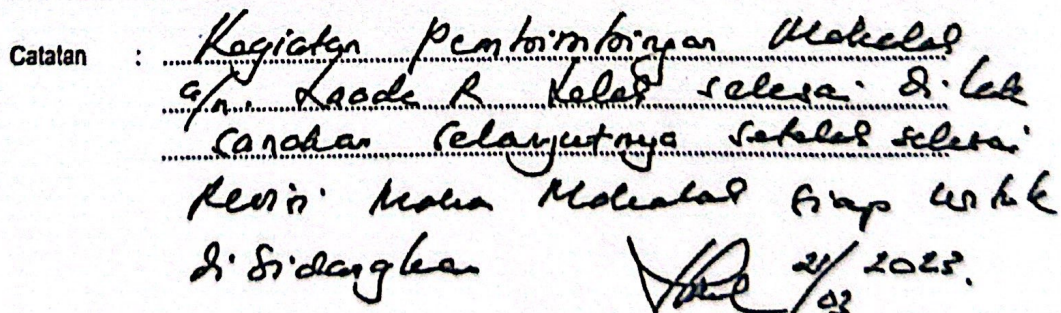 Catatan : Kegiatan Pembimbingan Makalah
a/n. Laode R telah selesai dilak
sanakan selanjutnya setelah selesai
Revisi Maka Makalah siap untuk
disidangkan 21/03 2023.